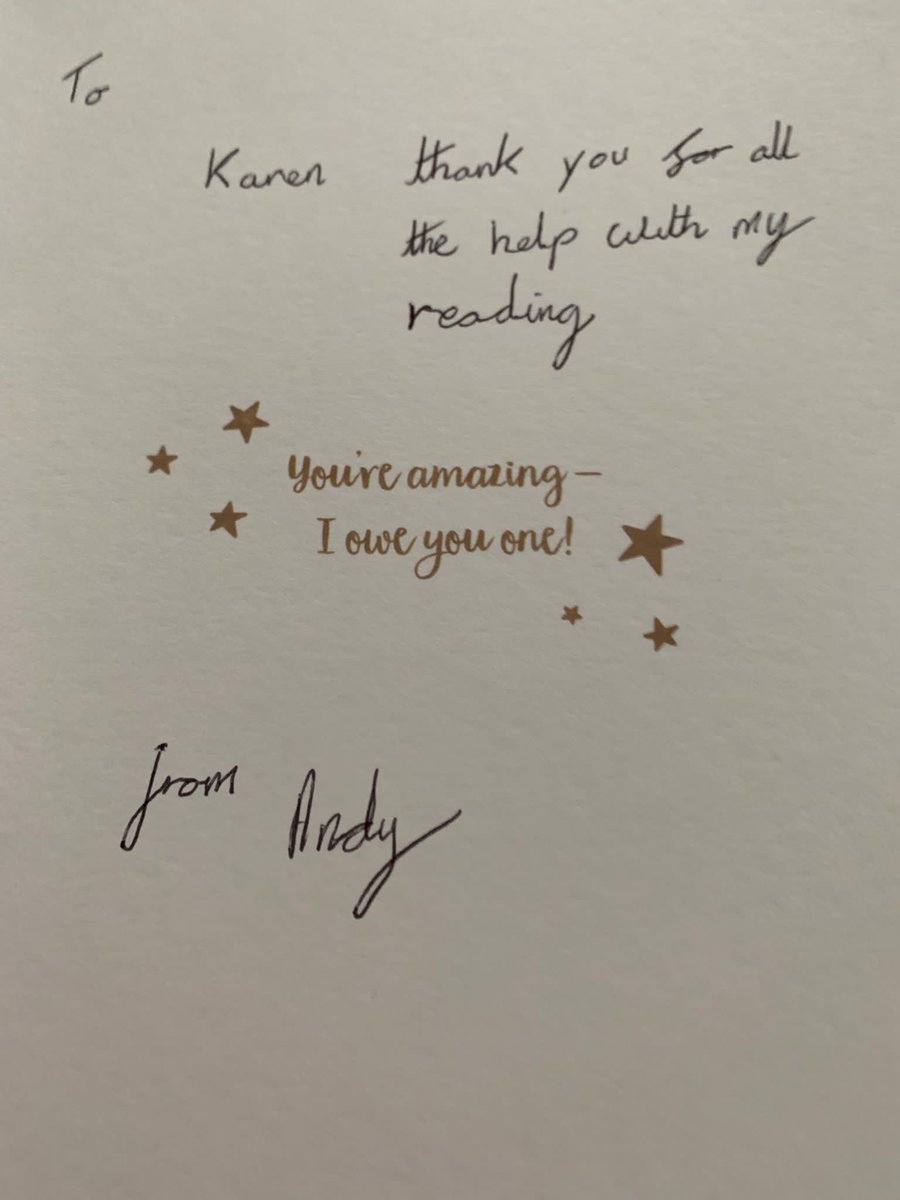 To
Karen thank you for all
the help with my
reading
You're amazing –
I owe you one!
from Andy